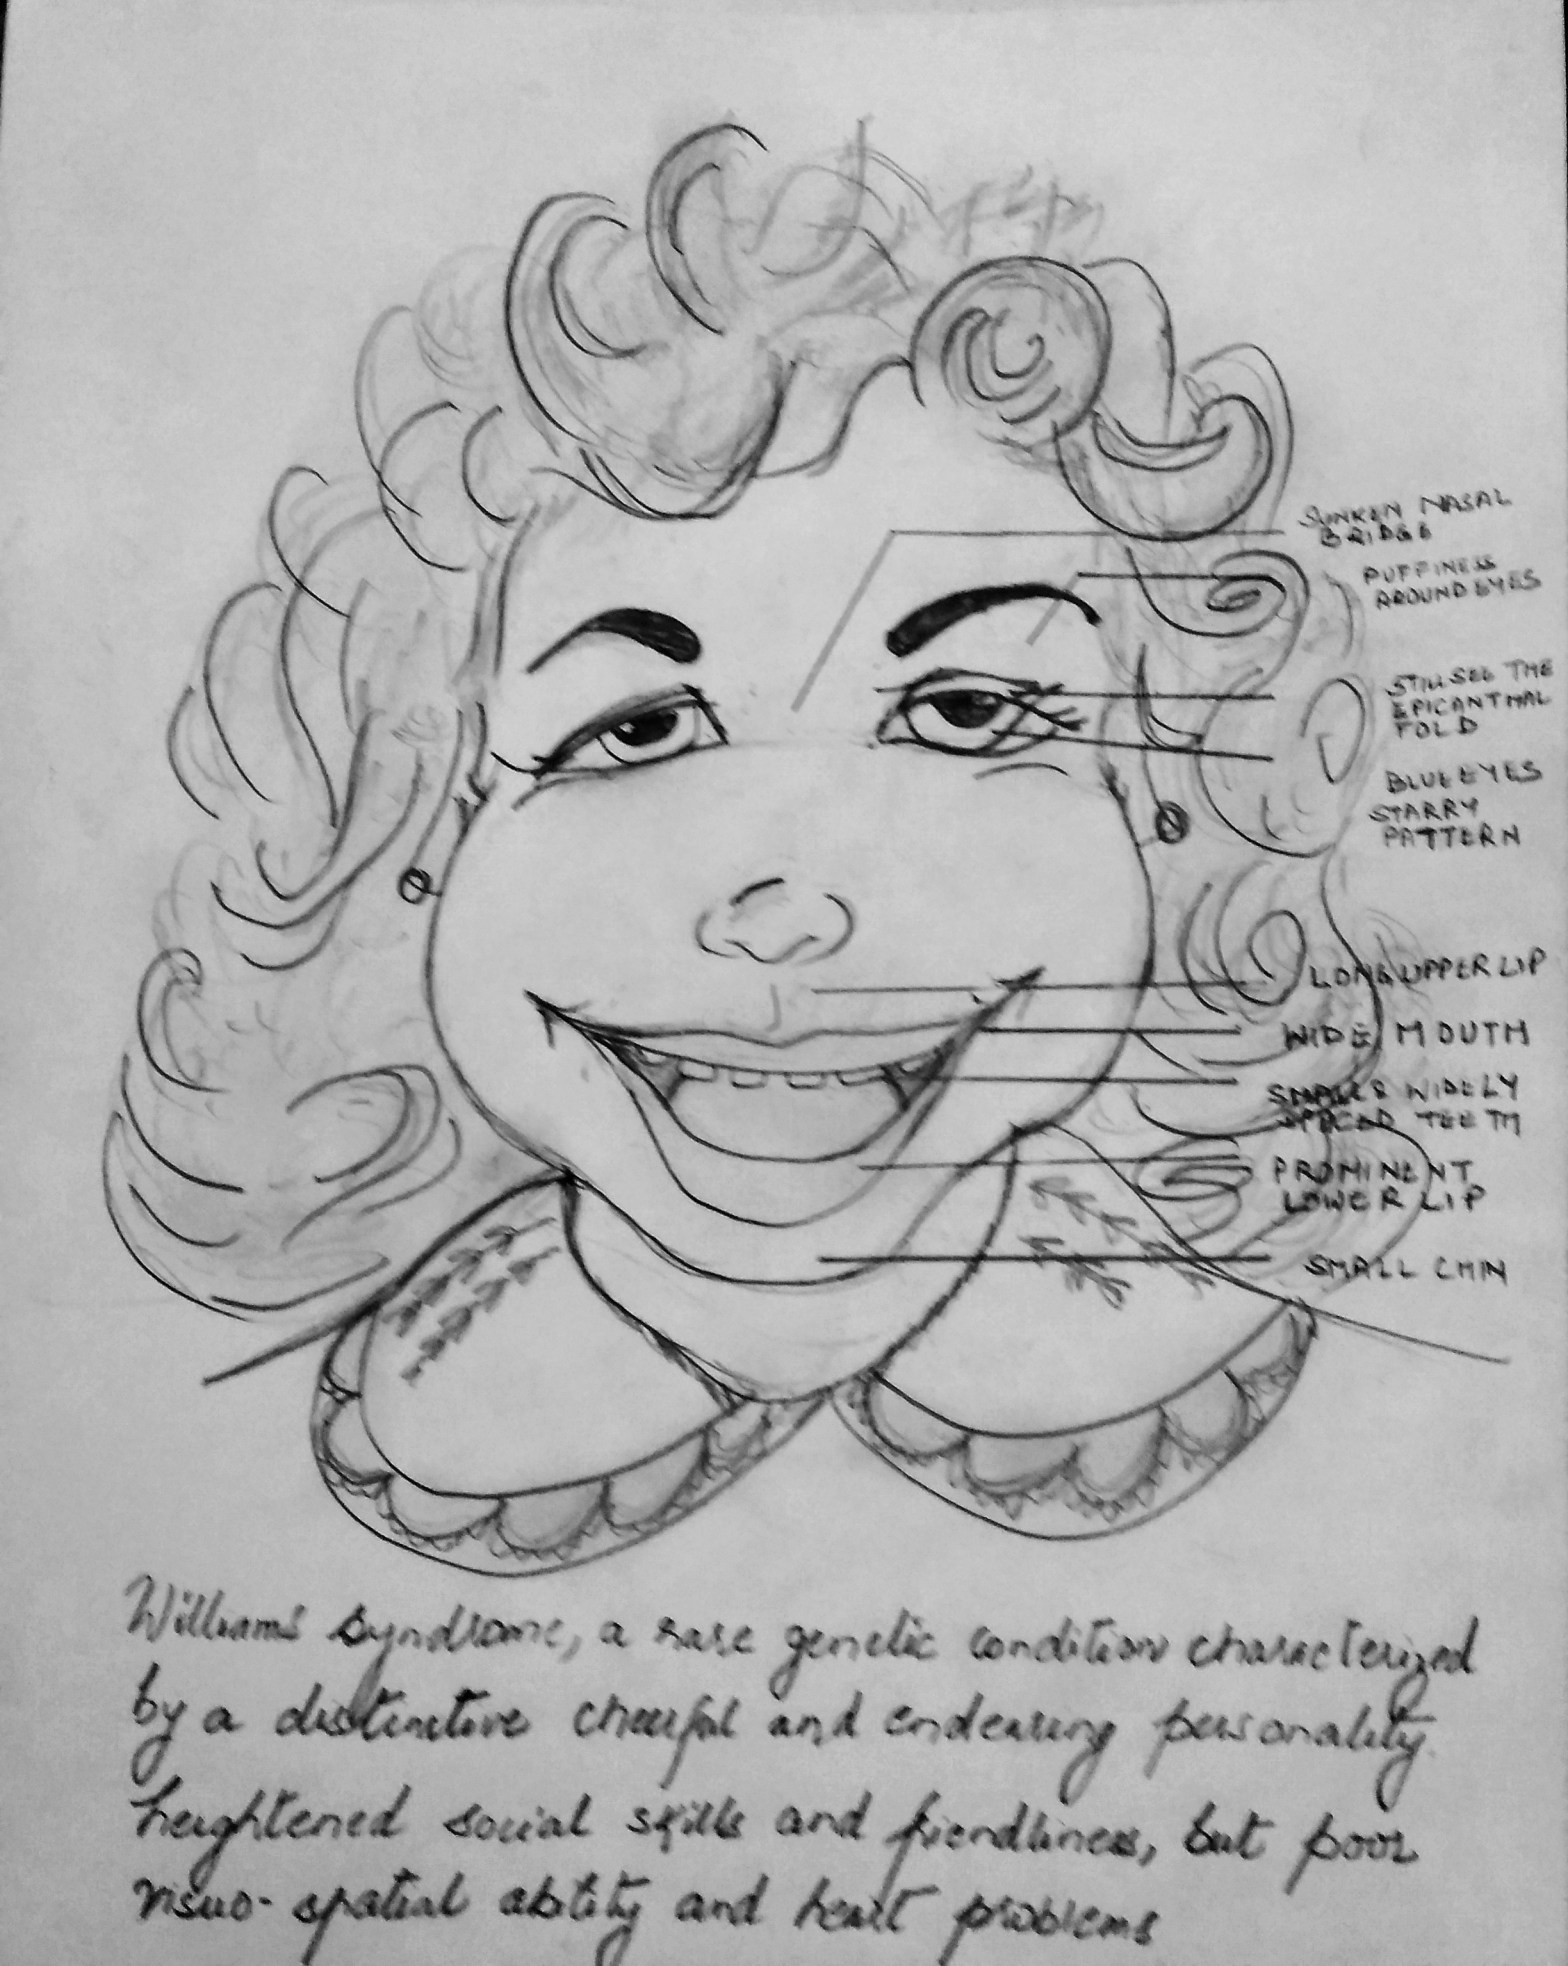 SUNKEN NASAL
BRIDGE
PUFFINESS
AROUND EYES
STILL SEE THE
EPICANTHAL
FOLD
BLUE EYES
STARRY
PATTERN
LONG UPPER LIP
WIDE MOUTH
SMALL & WIDELY
SPACED TEETH
PROMINENT
LOWER LIP
SMALL CHIN
Williams syndrome, a rare genetic condition characterized
by a distinctive cheerful and endearing personality.
heightened social skills and friendliness, but poor
visuo-spatial ability and heart problems